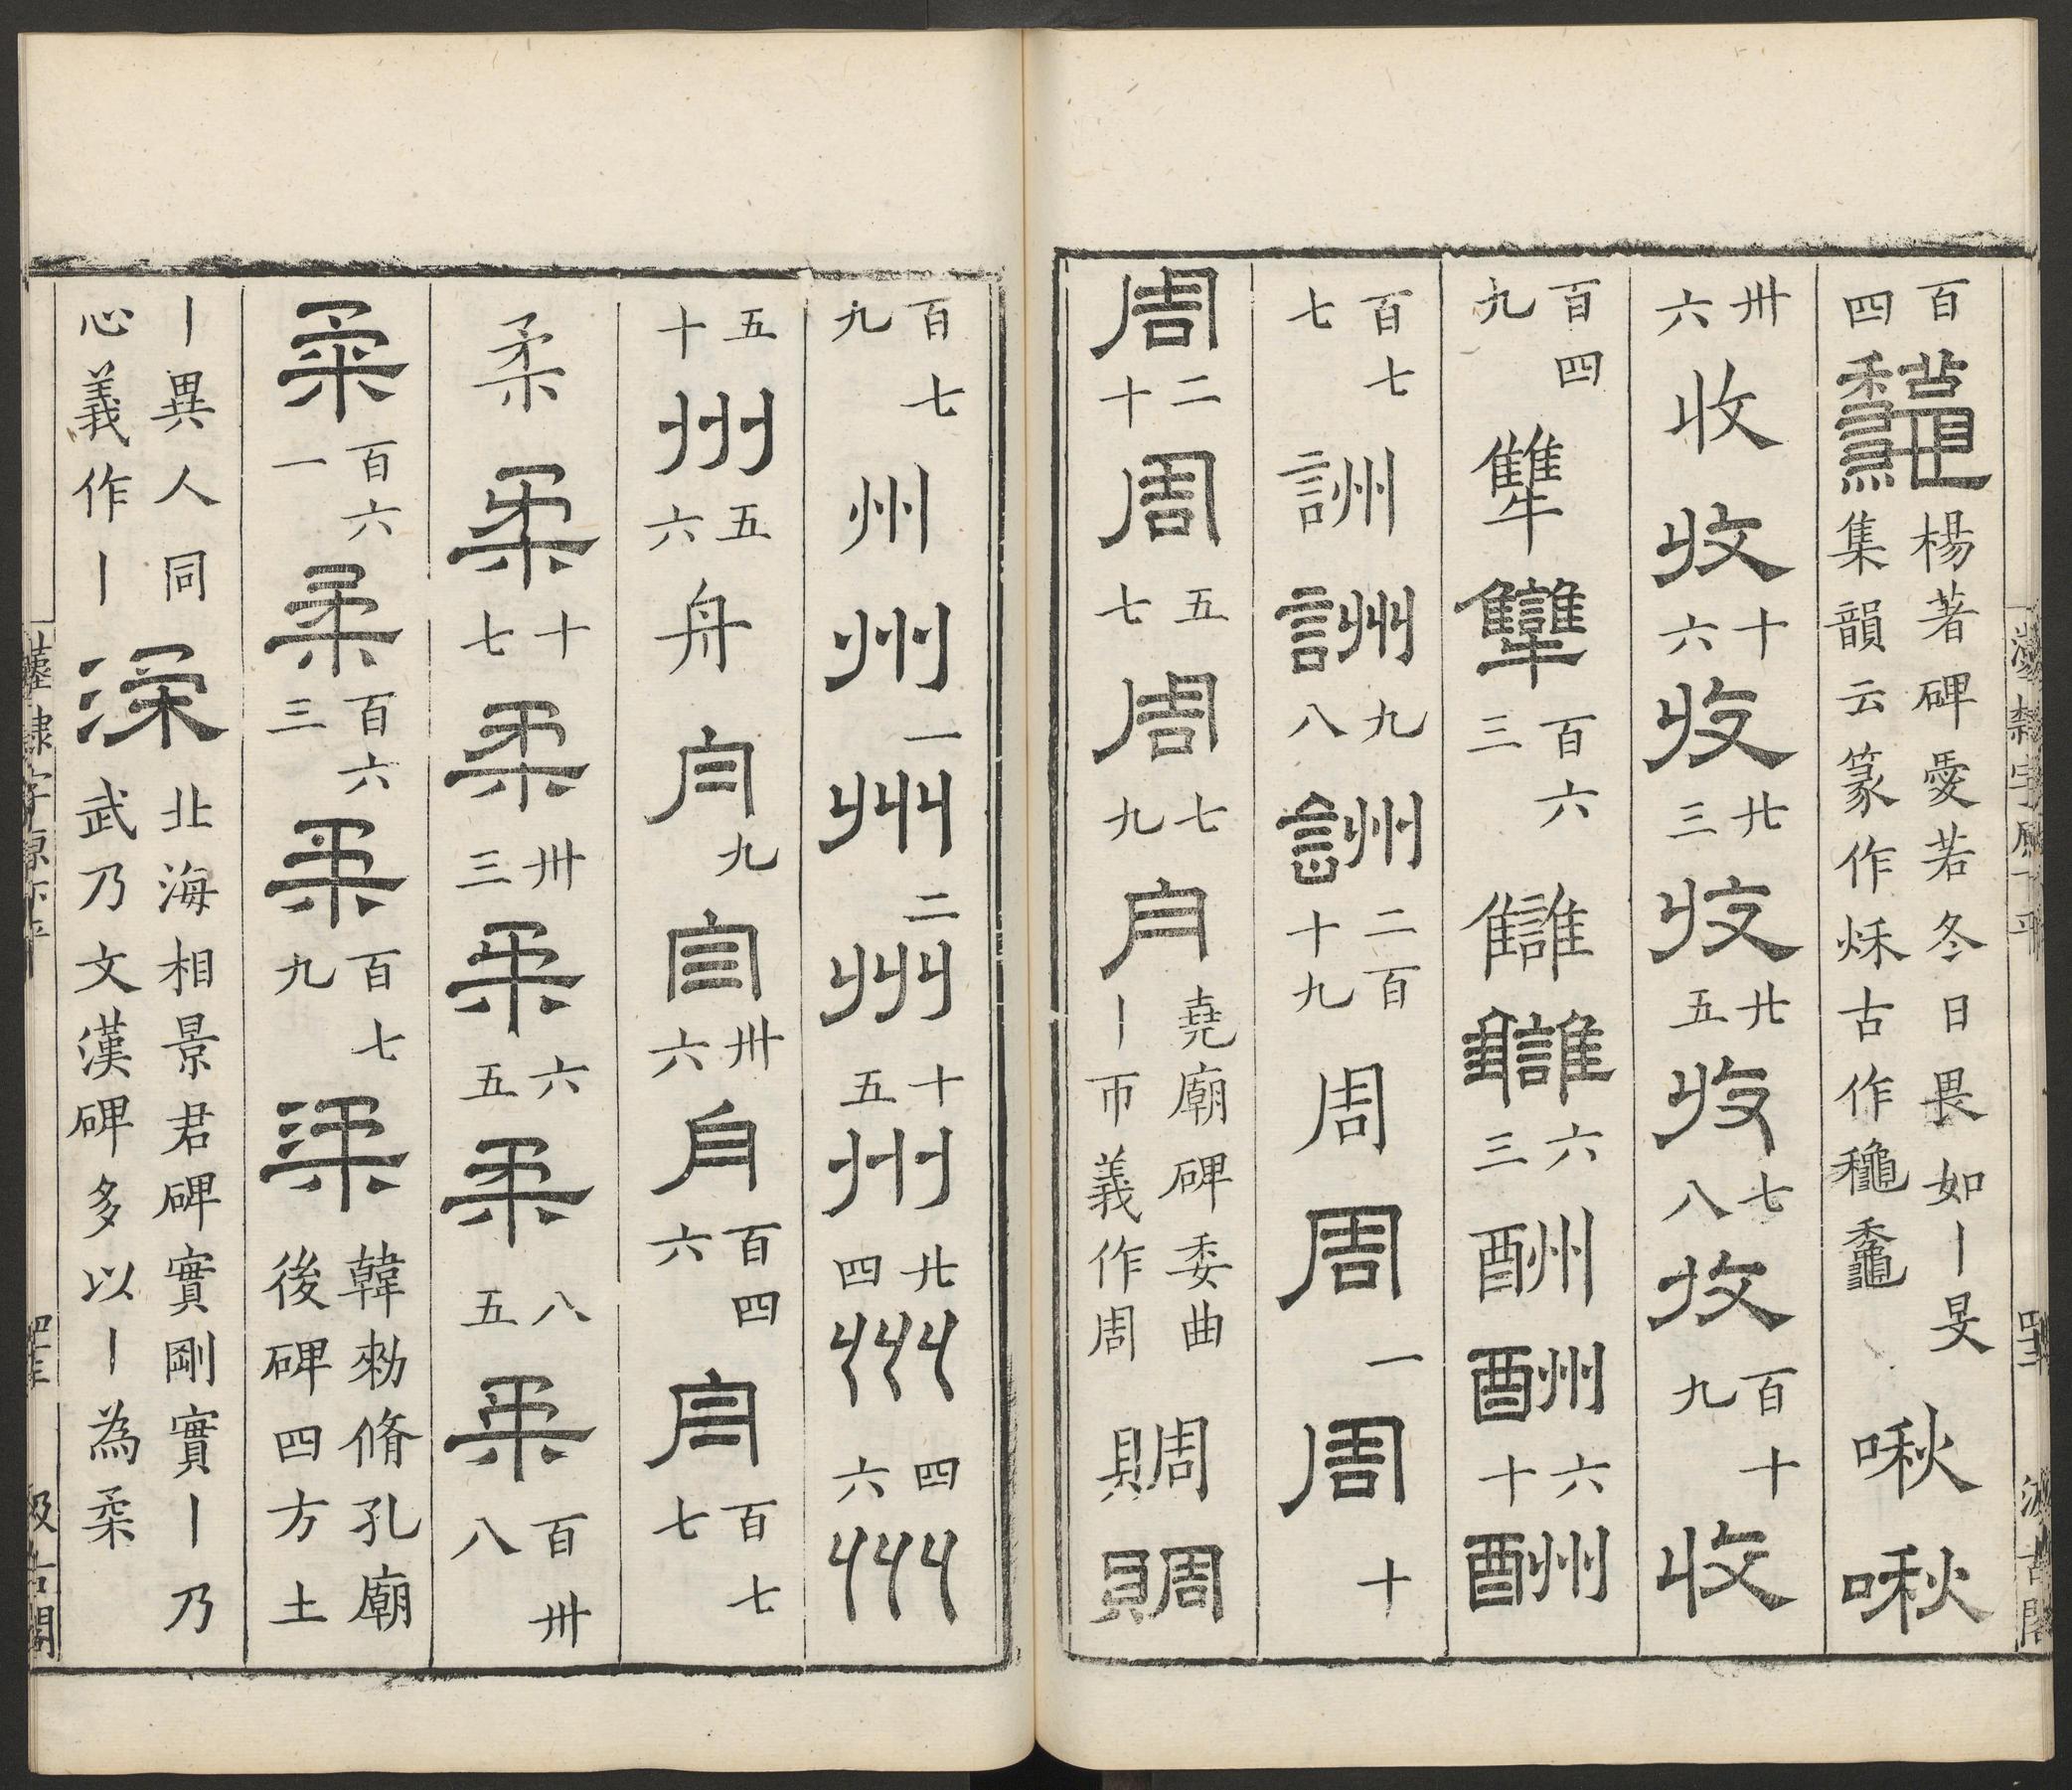 百四𪛁楊著碑愛若冬日畏如丨旻集韻云篆作烌古作龝䆋啾啾
卅六收收十六收廿三收廿五收七八收百十九收
百四九犨犫百六三讎讎六三酬酬六十酬
百七七詶詶九八詶二百十九周周一周十
周二十周五七周七九周堯廟碑委曲丨帀義作周賙賙
百七九州州一州二州十五州廿四州四六州
五十州五六舟舟九舟卅六舟百四六舟百七七
柔柔十七柔卅三柔六五柔八五柔百卅八
柔百六一柔百六三柔百七九渘韓勑脩孔廟後碑四方土
丨異人同心義作丨渘北海相景君碑實剛實丨乃武乃文漢碑多以丨為柔